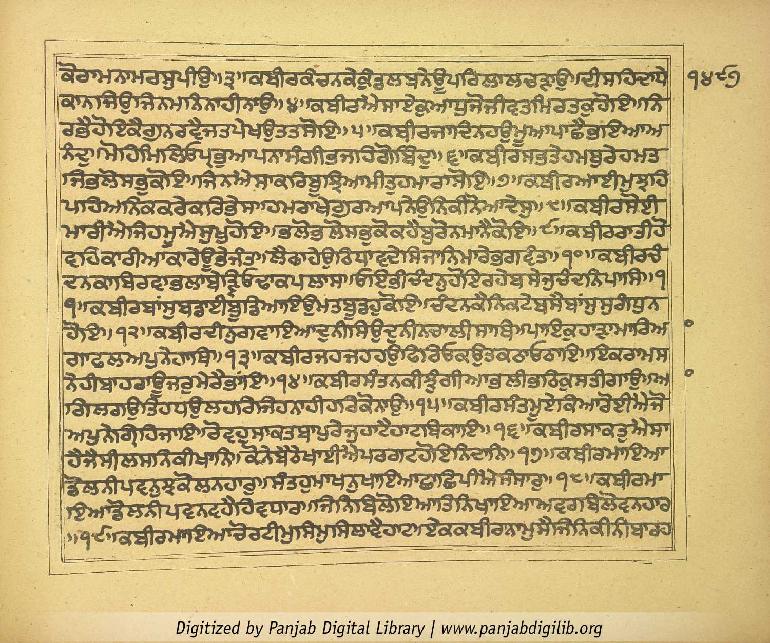 ਕੋਰਾਮਨਾਮਰਸੁਪੀਉ॥੩॥ਕਬੀਰਕੰਚਨਕੇਕੁੰਡਲਬਨੇਊਪਰਿਲਾਲਜੜਾਉ॥ਦੀਸਹਿਦਾਧੇ ੧੪੯੭
ਕਾਨਜਿਉਜਿਨਮਨਿਨਾਹੀਨਾਉ॥੪॥ਕਬੀਰਐਸਾਏਕੁਆਧੁਜੋਜੀਵਤਮਿਰਤਕੁਹੋਇ॥ਨਿ
ਰਭੈਹੋਇਕੈਗੁਨਰਵੈਜਤਪੇਖਉਤਤਸੋਇ॥੫॥ਕਬੀਰਜਾਦਿਨਹਉਮੂਆਪਾਛੈਭਇਆਅ
ਨੰਦੁ॥ਮੋਹਿਮਿਲਿਓਪ੍ਰਭੁਆਪਨਾਸੰਗੀਭਜਹਿਗੋੁਬਿੰਦ॥੬॥ਕਬੀਰਸਭਤੇਹਮਬੁਰੇਹਮਤ
ਜਿਭਲੋਸਭੁਕੋਇ॥ਜਿਨਐਸਾਕਰਿਬੂਝਿਆਮੀਤੁਹਮਾਰਾਸੋਇ॥੭॥ਕਬੀਰਆਈਮੁਝਹਿ
ਪਹਿਅਨਿਕਕਰੇਕਰਿਭੇਸ॥ਹਮਰਾਖੇਗੁਰਆਪਨੇਉਨਿਕੀਨੋਆਦੇਸੁ॥੮॥ਕਬੀਰਸੋਈ
ਮਾਰੀਐਜਿਹਮੂਐਸੁਖੁਹੋਇ॥ਭਲੋਭਲੋਸਭੁਕੋਕਹੈਬੁਰੋਨਮਾਨੈਕੋਇ॥੯॥ਕਬੀਰਰਾਤੀਹੋ
ਵਹਿਕਾਰੀਆਕਾਰੇਊਭੇਜੰਤ॥ਲੈਫਾਹੇਉਠਿਧਾਵਤੇਸਿਜਾਨਿਮਾਰੇਭਗਵੰਤ॥੧੦॥ਕਬੀਰਚੰ
ਦਨਕਾਬਿਰਵਾਭਲਾਬੇੜ੍ਹਿਓਢਾਕਪਲਾਸ॥ਓਇਭੀਚੰਦਨੁਹੋਇਰਹੇਬਸੇਜੁਚੰਦਨਪਾਸਿ॥੧
੧॥ਕਬੀਰਬਾਂਸੁਬਡਾਈਬੂਡਿਆਇਉਮਤਡੂਬਹੁਕੋਇ॥ਚੰਦਨਕੈਨਿਕਟੇਬਸੈਬਾਂਸੁਸੁਗੰਧੁਨ
ਹੋਇ॥੧੨॥ਕਬੀਰਦੀਨੁਗਵਾਇਆਦੁਨੀਸਿਉਦੁਨੀਨਚਾਲੀਸਾਥਿ॥ਪਾਇਕੁਹਾੜਾਮਾਰਿਆ
ਗਾਫਲਿਅਪੁਨੈਹਾਥਿ॥੧੩॥ਕਬੀਰਜਹਜਹਹਉਫਿਰਿਓਕਉਤਕਠਾਓਠਾਇ॥ਇਕਰਾਮਸ
ਨੇਹੀਬਾਹਰਾਊਜਰੁਮੇਰੈਭਾਂਇ॥੧੪॥ਕਬੀਰਸੰਤਨਕੀਝੁੰਗੀਆਭਲੀਭਠਿਕੁਸਤੀਗਾਉ॥ਆ
ਗਿਲਗਉਤਿਹਧਉਲਹਰਿਜਿਹਨਾਹੀਹਰਿਕੋਨਾਉ॥੧੫॥ਕਬੀਰਸੰਤਮੂਏਕਿਆਰੋਈਐਜੋ
ਅਪੁਨੇਗ੍ਰਿਹਿਜਾਇ॥ਰੋਵਹੁਸਾਕਤਬਾਪੁਰੇਜੁਹਾਟੈਹਾਟਬਿਕਾਇ॥੧੬॥ਕਬੀਰਸਾਕਤੁਐਸਾ
ਹੈਜੈਸੀਲਸਨਕੀਖਾਨਿ॥ਕੋਨੇਬੈਠੇਖਾਈਐਪਰਗਟਹੋਇਨਿਦਾਨਿ॥੧੭॥ਕਬੀਰਮਾਇਆ
ਡੋਲਨੀਪਵਨੁਝਕੋਲਨਹਾਰੁ॥ਸੰਤਹੁਮਾਖਨੁਖਾਇਆਛਾਛਿਪੀਐਸੰਸਾਰੁ॥੧੮॥ਕਬੀਰਮਾ
ਇਆਡੋਲਨੀਪਵਨੁਵਹੈਹਿਵਧਾਰ॥ਜਿਨਿਬਿਲੋਇਆਤਿਨਿਖਾਇਆਅਵਰਬਿਲੋਵਨਹਾਰ
॥੧੯॥ਕਬੀਰਮਾਇਆਚੋਰਟੀਮੁਸਿਮੁਸਿਲਾਵੈਹਾਟਿ॥ਏਕੁਕਬੀਰਾਨਾਮੁਸੈਜਿਨਿਕੀਨੀਬਾਰਹ
Digitized by Panjab Digital Library | www.panjabdigilib.org